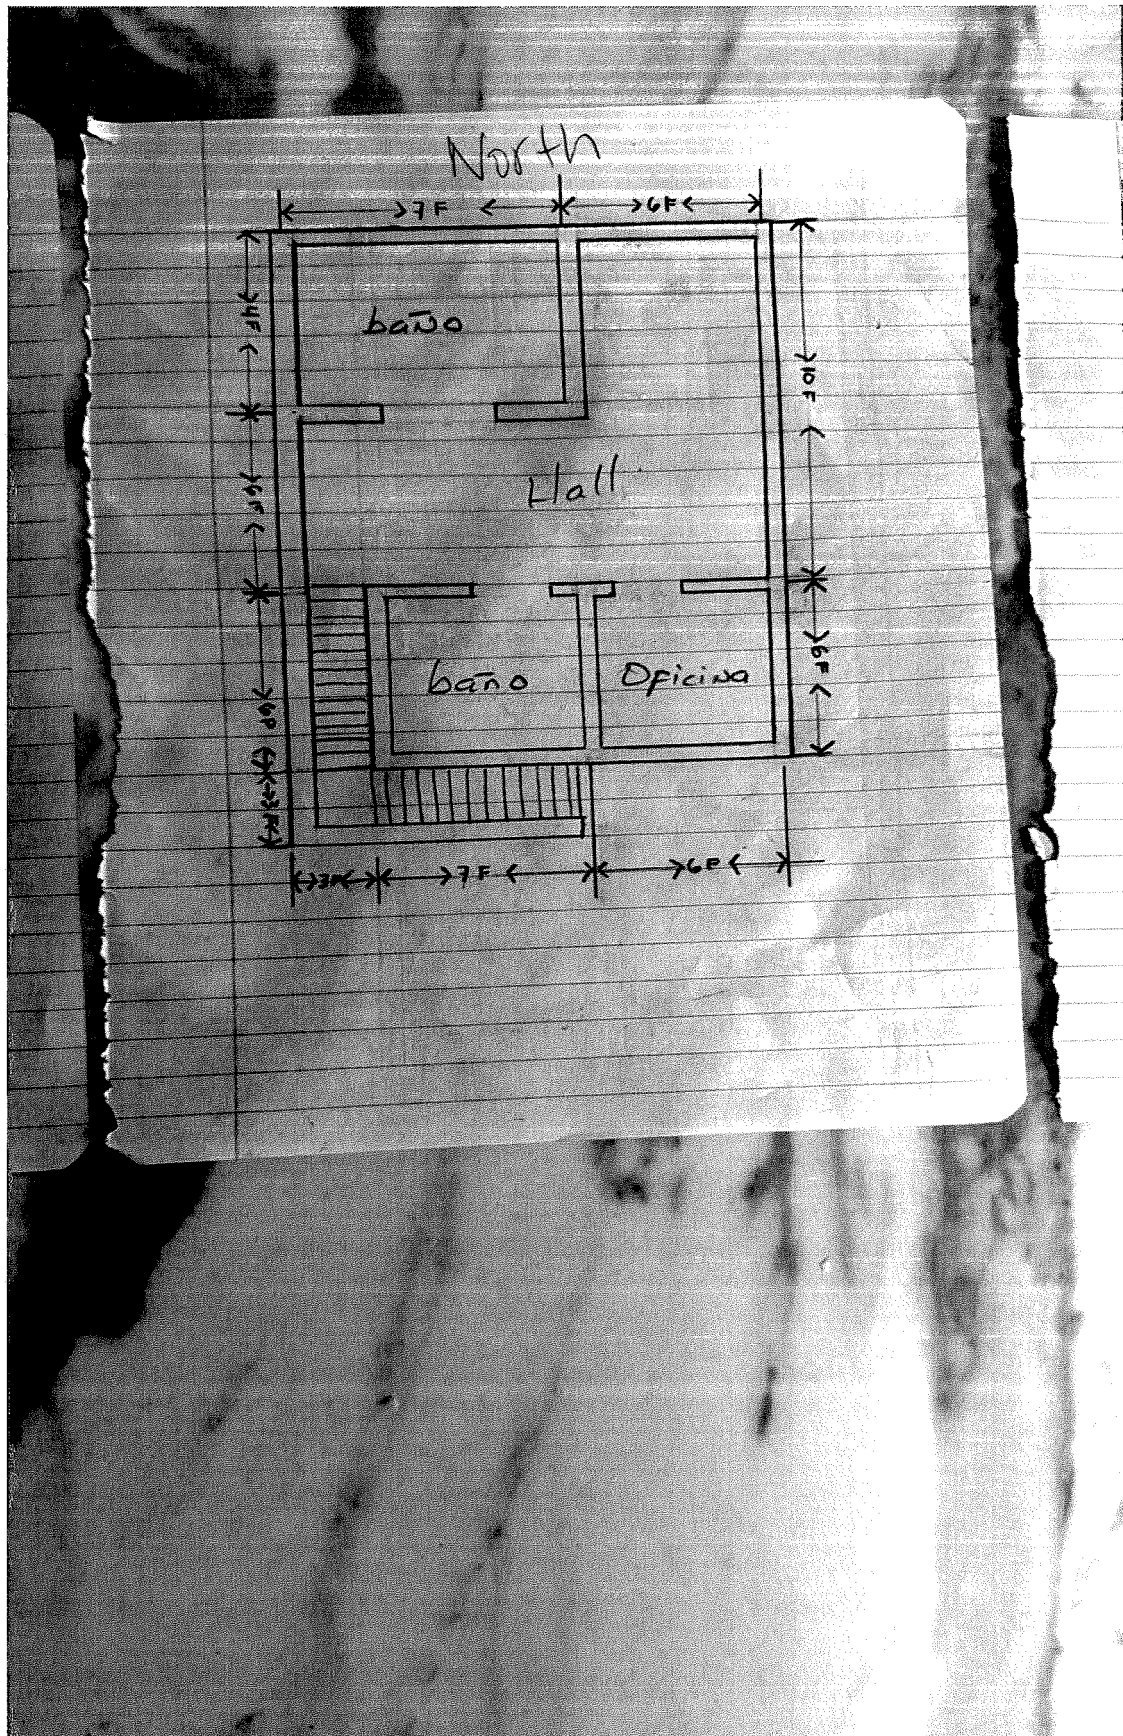 North
7F 6F
baño
4F
10F
Hall
6F
baño Oficina
6F
6F
3F
3F 7F 6F